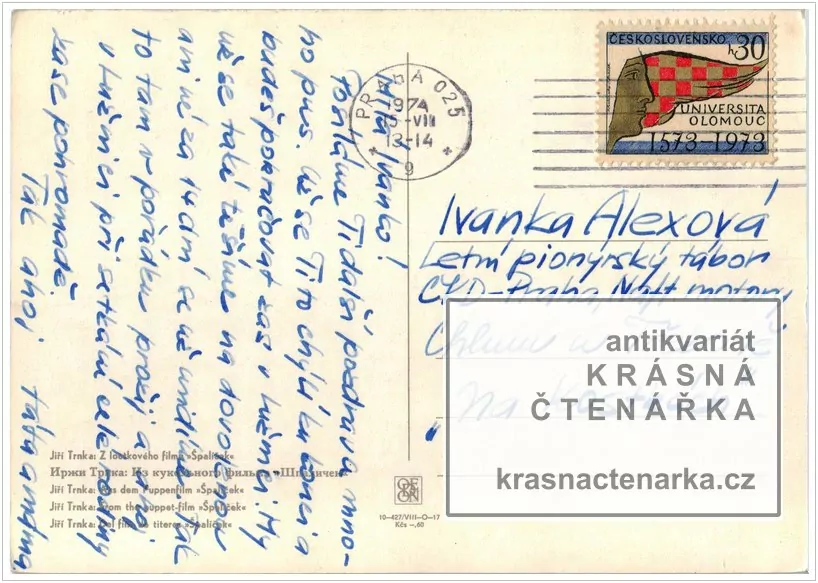 Milá Ivanko!
Posíláme Ti další pozdrav a mno-
ho pus. Už se Ti to chýlí ku konci a
budeš pokračovat zas v Lužnici. My
už se také těšíme na dovolenou
ani né za 14 dní se už uvidíme. Tak
to tam v pořádku prožij a ahoj
v Lužnici při setkání celé rodiny
zase pohromadě.
Tak ahoj táta a máma
PRAHA 025
1974
5-VIII
13-14
9
ČESKOSLOVENSKO
h30
UNIVERSITA
OLOMOUC
1573-1973
Ivanka Alexová
Letní pionýrský tábor
ČKD-Praha, Naft. motory
Chlum u
Na
antikvariát
KRÁSNÁ
ČTENÁŘKA
krasnactenarka.cz
Jiří Trnka: Z loutkového filmu »Špalíček«
Иржи Трнка: Из кукольного фильма »Шпаличек«
Jiří Trnka: Aus dem Puppenfilm »Špalíček«
Jiří Trnka: From the puppet-film »Špalíček«
Jiří Trnka: Del film de titeres »Špalíček«
ORBIS
10-427/VIII-O-17
Kčs -,60